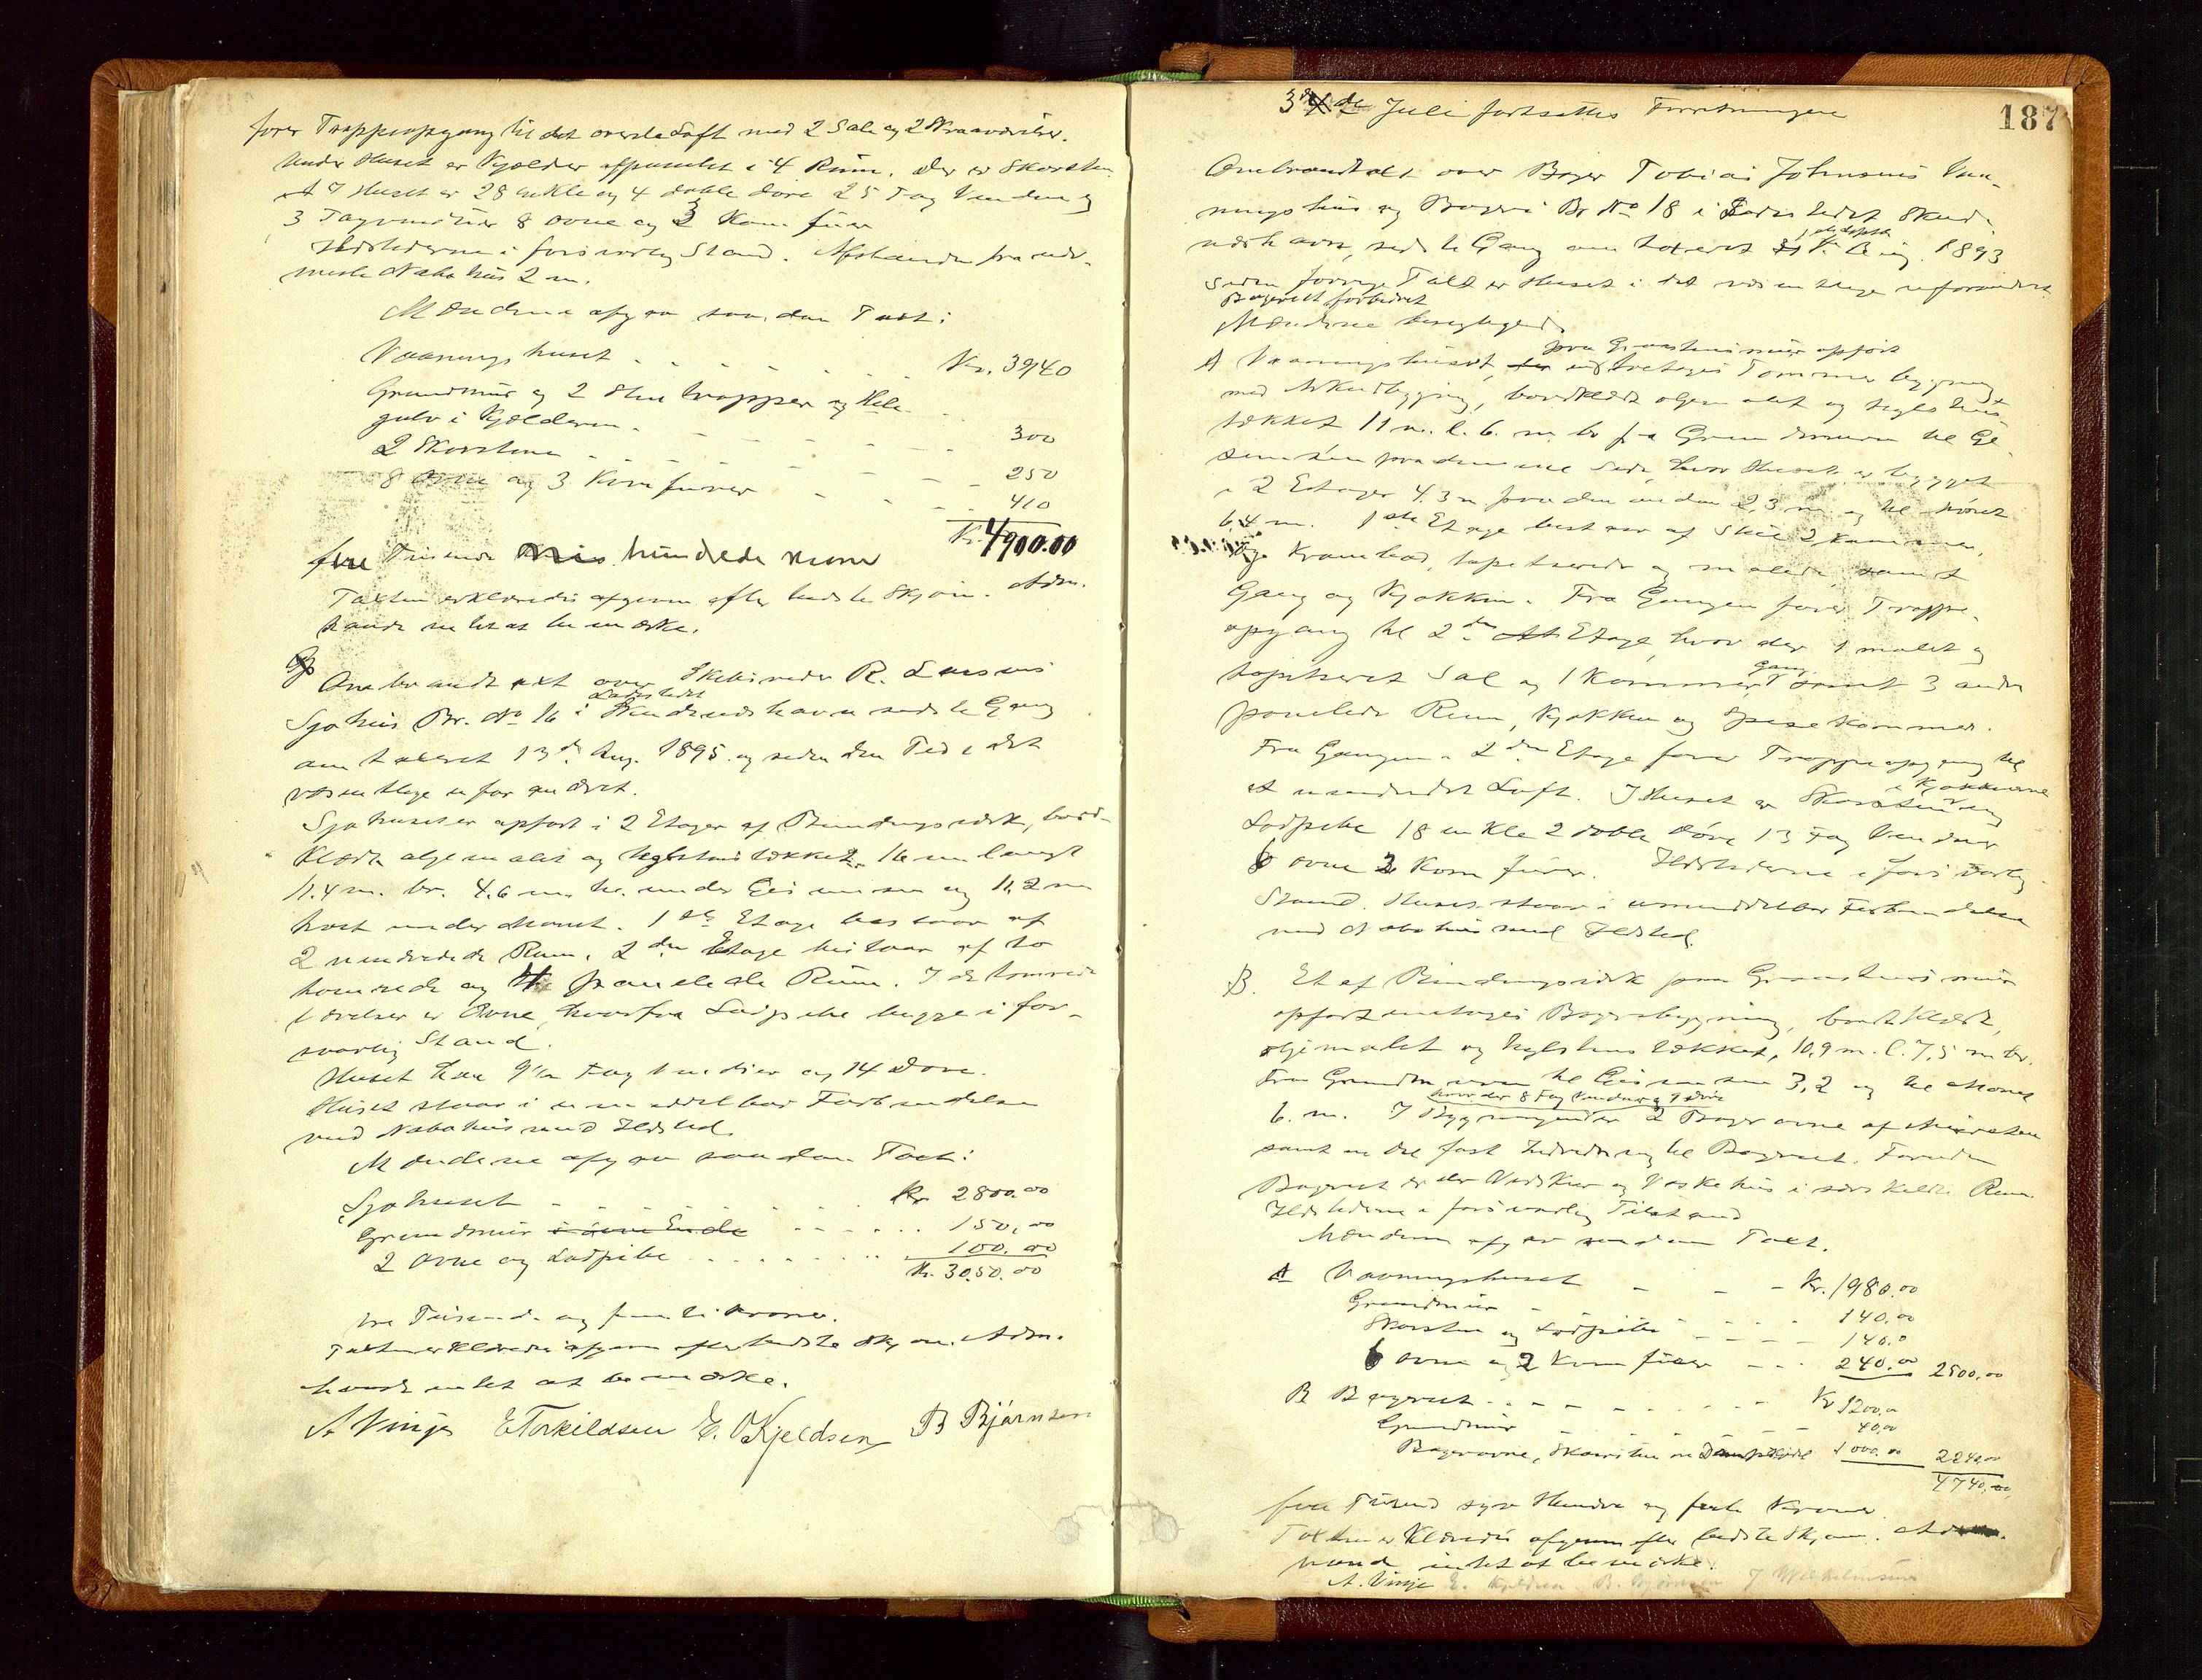 fører Trappeopgang til det øverste Loft med 2 Sale og 2 Skraaværelser.
Under Huset er Kjælder afpanelet i 4 Rum. Der er Skorsten
I Huset er 28 enkle og 4 doble Døre 25 Fag Vinduer og
3 Tagvinduer 8 Ovne og 3 Komfurer
Ildstederne i forsvarlig Stand. Afstanden fra nær-
meste Nabohus 2 m.
Mændene afgav saadan Taxt:
Vaaningshuset Kr. 3940
Grundmur og 2 Stentrapper og Hele-
gulv i Kjælderen 300
2 Skorstene 250
8 Ovne og 3 Komfurer 410
Kr. 4900.00
fire Tusende ni hundrede Kroner
Taxten erklæredes afgiven efter bedste Skjøn. Adm.
havde intet at bemærke.
Ombrandtaxt over Skibsreder R. Larsens
Sjøhus Br. No 16 i Ladestedet Skudeneshavn sidste Gang
omtaxeret 13de Aug. 1895 og siden den Tid i det
væsentlige uforandret.
Sjøhuset er opført i 2 Etager af Bindingsværk, bord-
klædt oljemalet og teglstentækket 16 m langt
11.4 m. br. 4.6 m. til under Gesimsen og 11,2 m
høit under Mønet. 1ste Etage bestaar af
2 uindredede Rum. 2den Etage bestaar af to
tomrede og panelede Rum. I de tomrede
Værelser er Ovne, hvorfra Ladpibe begge i for-
svarlig Stand.
Huset har 9½ Fag Vinduer og 14 Døre.
Huset staar i umiddelbar Forbindelse
med Nabohus med Ildsted.
Mændene afgav saadan Taxt:
Sjøhuset Kr 2800.00
Grundmur i den Ende 150,00
2 Ovne og Ladpibe 100.00
Kr. 3050.00
tre Tusende og femti Kroner.
Taxten erklæredes afgiven efter bedste Skjøn. Adm.
havde intet at bemærke.
A Vinje E Torkildsen E. O Kjeldsen B Bjørnsen
187
3de Juli fortsattes Forretningen
Ombrandtaxt over Bager Tobias Johnsens Vaa-
ningshus og Bageri Br No 18 i Ladestedet Skude-
neshavn, sidste Gang omtaxeret 1893
siden forrige Taxt er Huset i det væsentlige uforandret
Bageriet forbedret
Mændene besigtigede
A Vaaningshuset, paa Graastensmur opført toetages Tømmerbygning
med Arkudbygging, bordklædt oljemalet og teglsten
tækket 11 m. l. 6. m. br fra Grundmuren til Ge-
simsen paa den ene Side, hvor Huset er bygget
i 2 Etager 4.3 m paa den anden 2,3 m og til Mønet
6.4 m. 1ste Etage bestaar af Stue 2 Kammer,
Krambod, tapetserede og malede samt
Gang og Kjøkken. Fra Gangen fører Trappe-
opgang til 2den Etage, hvor der 1 malet og
tapetseret Sal og 1 Kammer, Gang samt 3 andre
panelede Rum, Kjøkken og Spisekammer.
Fra Gangen i 2den Etage fører Trappeopgang til
et uindredet Loft. I Huset er Skorsten i Kjøkkenerne og
Ladpibe 18 enkle 2 doble Døre 13 Fag Vinduer
6 Ovne 2 Komfurer. Ildstederne i forsvarlig
Stand. Huset staar i umiddelbar Forbindelse
med Nabohus med Ildsted.
B. Et af Bindingsværk paa Graastensmur
opført enetages Bageribygning, bordklædt,
oljemalet og teglstentækket, 10,9 m. l. 7,5 m br.
Fra Grundmuren til Gesimsen 3,2 og til Mønet
6. m. I Bygningen hvor der 8 Fag Vinduer og 9 Døre er 2 Bagerovne af Mursten
samt en Del fast Indredning til Bageriet. Foruden
Bageriet er der Vedskur og Vaskehus i særskilte Rum
Ildstederne i forsvarlig Tilstand
Mændene afgav saadan Taxt.
A Vaaningshuset Kr. 1980.00
Grundmur 140.00
Skorsten og Ladpibe 140.0
6 Ovne og 2 Komfurer 240.00 2500.00
B Bageriet Kr 1200,00
Grundmur 40,00
Bagerovne, Skorsten 1000.00 2240,00
4740,00,
fire Tusend syv Hundre og førti Kroner
Taxten erklæredes afgiven efter bedste Skjøn. Adm.
havde intet at bemærke.
A. Vinje E. Kjeldsen B. Bjørnsen J Wilhelmsen